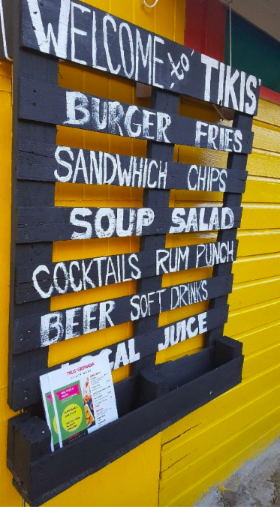 WELCOME TIKIS
BURGER FRIES
SANDWHICH CHIPS
SOUP SALAD
COCKTAILS RUM PUNCH
BEER SOFT DRINKS
JUICE